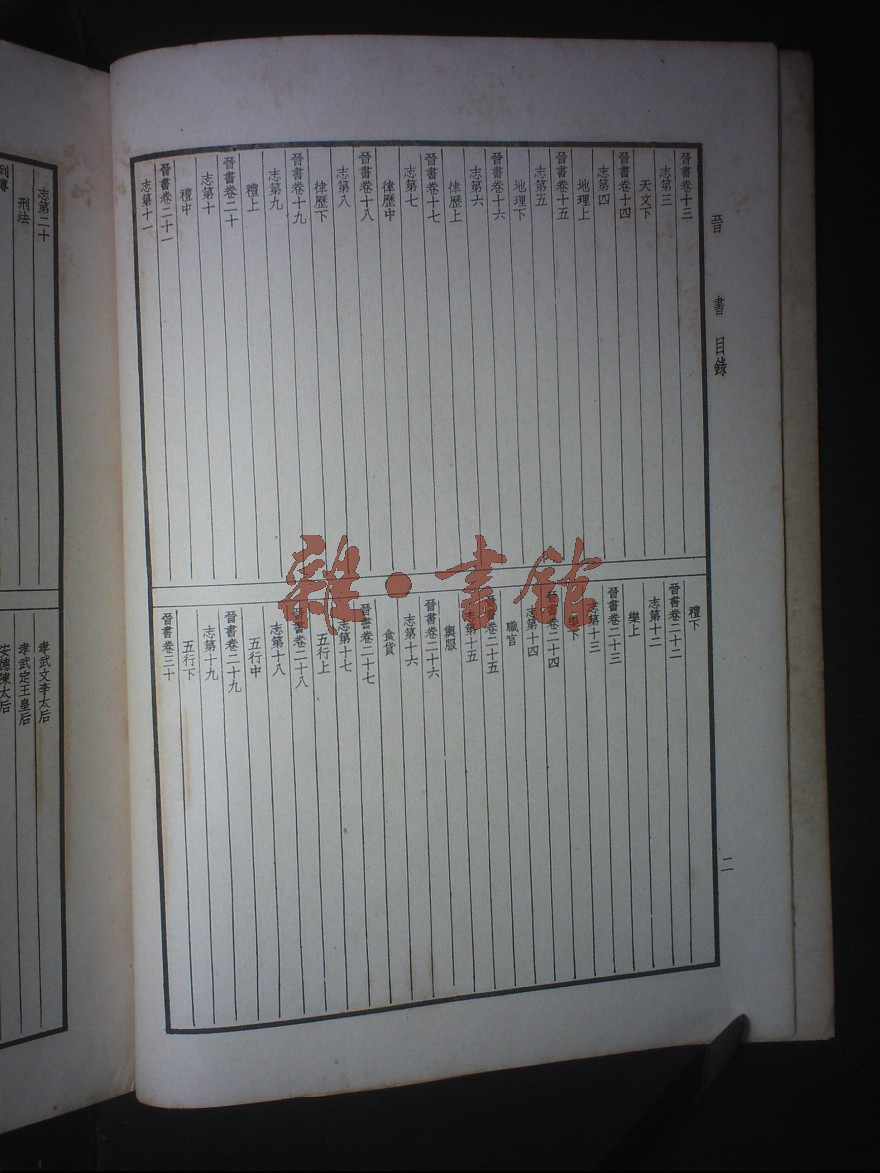 晉書目錄
二
晉書卷十三
志第三
天文下
晉書卷十四
志第四
地理上
晉書卷十五
志第五
地理下
晉書卷十六
志第六
律歷上
晉書卷十七
志第七
律歷中
晉書卷十八
志第八
律歷下
晉書卷十九
志第九
禮上
晉書卷二十
志第十
禮中
晉書卷二十一
志第十一
禮下
晉書卷二十二
志第十二
樂上
晉書卷二十三
志第十三
樂下
晉書卷二十四
志第十四
職官
晉書卷二十五
志第十五
輿服
晉書卷二十六
志第十六
食貨
晉書卷二十七
志第十七
五行上
晉書卷二十八
志第十八
五行中
晉書卷二十九
志第十九
五行下
晉書卷三十
志第二十
刑法
列傳
孝武文李太后
孝武定王皇后
安德陳太后
雜·書館